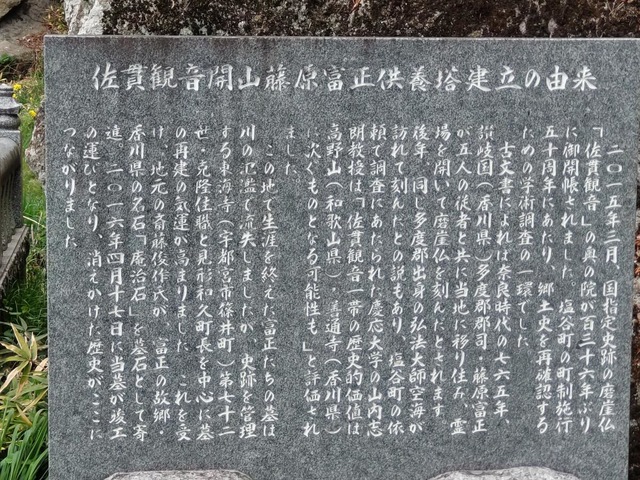 佐貫観音開山藤原富正供養塔建立の由来
二〇一五年三月、国指定史跡の磨崖仏
「佐貫観音」の奥の院が百三十六年ぶり
に御開帳されました 塩谷町の町制施行
五十周年にあたり、郷土史を再確認する
ための学術調査の一環でした
古文書によれば奈良時代の七六五年、
讃岐国(香川県)多度郡郡司・藤原富正
が五人の従者と共に当地に移り住み、霊
場を開いて磨崖仏を刻んだとされます。
後年、同じ多度郡出身の弘法大師空海が
訪れて刻んだとの説もあり、塩谷町の依
頼で調査にあたられた慶応大学の山内志
朗教授は「佐貫観音一帯の歴史的価値は
高野山(和歌山県)・善通寺(香川県)
に次ぐものとなる可能性も」と評価され
ました
この地で生涯を終えた富正たちの墓は
川の氾濫で流失しましたが、史跡を管理
する東海寺(宇都宮市篠井町)第七十二
世・克隆住職と見形和久町長を中心に墓
の再建の気運が高まりました これを受
け、地元の斎藤俊作氏が、富正の故郷・
香川県の名石「庵治石」を墓石として寄
進、二〇一六年四月十七日に当墓が竣工
の運びとなり、消えかけた歴史がここに
つながりました